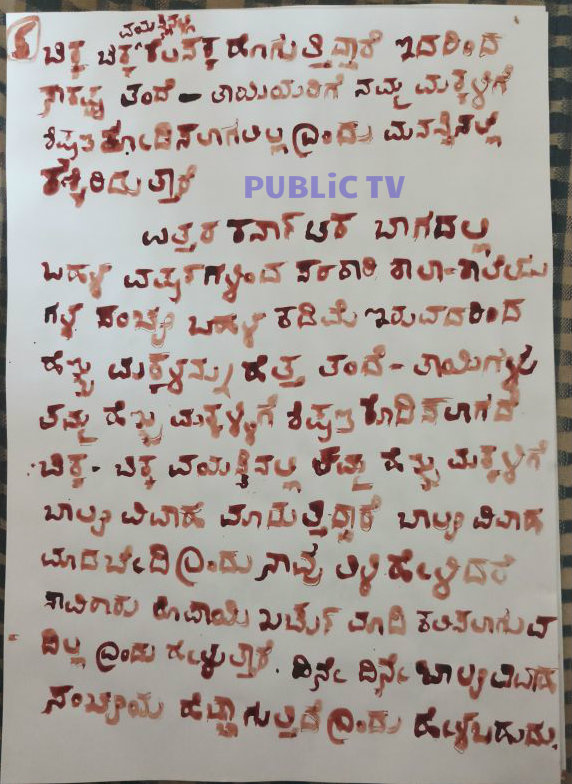 ವಯಸ್ಸಿನಲ್ಲಿ
ಚಿಕ್ಕ ಚಿಕ್ಕ ಕೆಲಸಕ್ಕೆ ಹೋಗುತ್ತಿದ್ದಾರೆ ಇದರಿಂದ
ತಂದೆ - ತಾಯಿಯರಿಗೆ ನಮ್ಮ ಮಕ್ಕಳಿಗೆ
ಶಿಕ್ಷಣ ಕೊಡಿಸಲಾಗಲಿಲ್ಲ ಎಂದು ಮನಸ್ಸಿನಲ್ಲಿ
PUBLiC TV
ಉತ್ತರ ಕರ್ನಾಟಕ ಬಾಗದಲ್ಲಿ
ಬಹಳ ವರ್ಷಗಳಿಂದ ಸರಕಾರಿ ಶಾಲಾ-ಕಾಲೇಜು
ಗಳ ಸಂಖ್ಯೆ ಬಹಳ ಕಡಿಮೆ ಇರುವದರಿಂದ
ಹೆಣ್ಣು ಮಕ್ಕಳನ್ನು ಹೆತ್ತ ತಂದೆ - ತಾಯಿಗಳು
ತಮ್ಮ ಹೆಣ್ಣು ಮಕ್ಕಳಿಗೆ ಶಿಕ್ಷಣ ಕೊಡಿಸಲಾಗದೆ
ಚಿಕ್ಕ - ಚಿಕ್ಕ ವಯಸ್ಸಿನಲ್ಲಿ ತಮ್ಮ ಹೆಣ್ಣು ಮಕ್ಕಳಿಗೆ
ಬಾಲ್ಯ ವಿವಾಹ ಮಾಡುತ್ತಿದ್ದಾರೆ ಬಾಲ್ಯ ವಿವಾಹ
ಮಾಡಬೇಡಿ ಎಂದು ನಾವು ತಿಳಿ ಹೇಳಿದರೆ
ಸಾವಿರಾರು ರೂಪಾಯಿ ಖರ್ಚು ಮಾಡಿ ಕಲಿಸಲಾಗುವ
ದಿಲ್ಲ ಎಂದು ಹೇಳುತ್ತಾರೆ. ದಿನೇ ದಿನೇ ಬಾಲ್ಯ ವಿವಾಹ
ಸಂಖ್ಯೆಯು ಹೆಚ್ಚಾಗುತ್ತಿದೆ ಎಂದು ಹೇಳಬಹುದು.